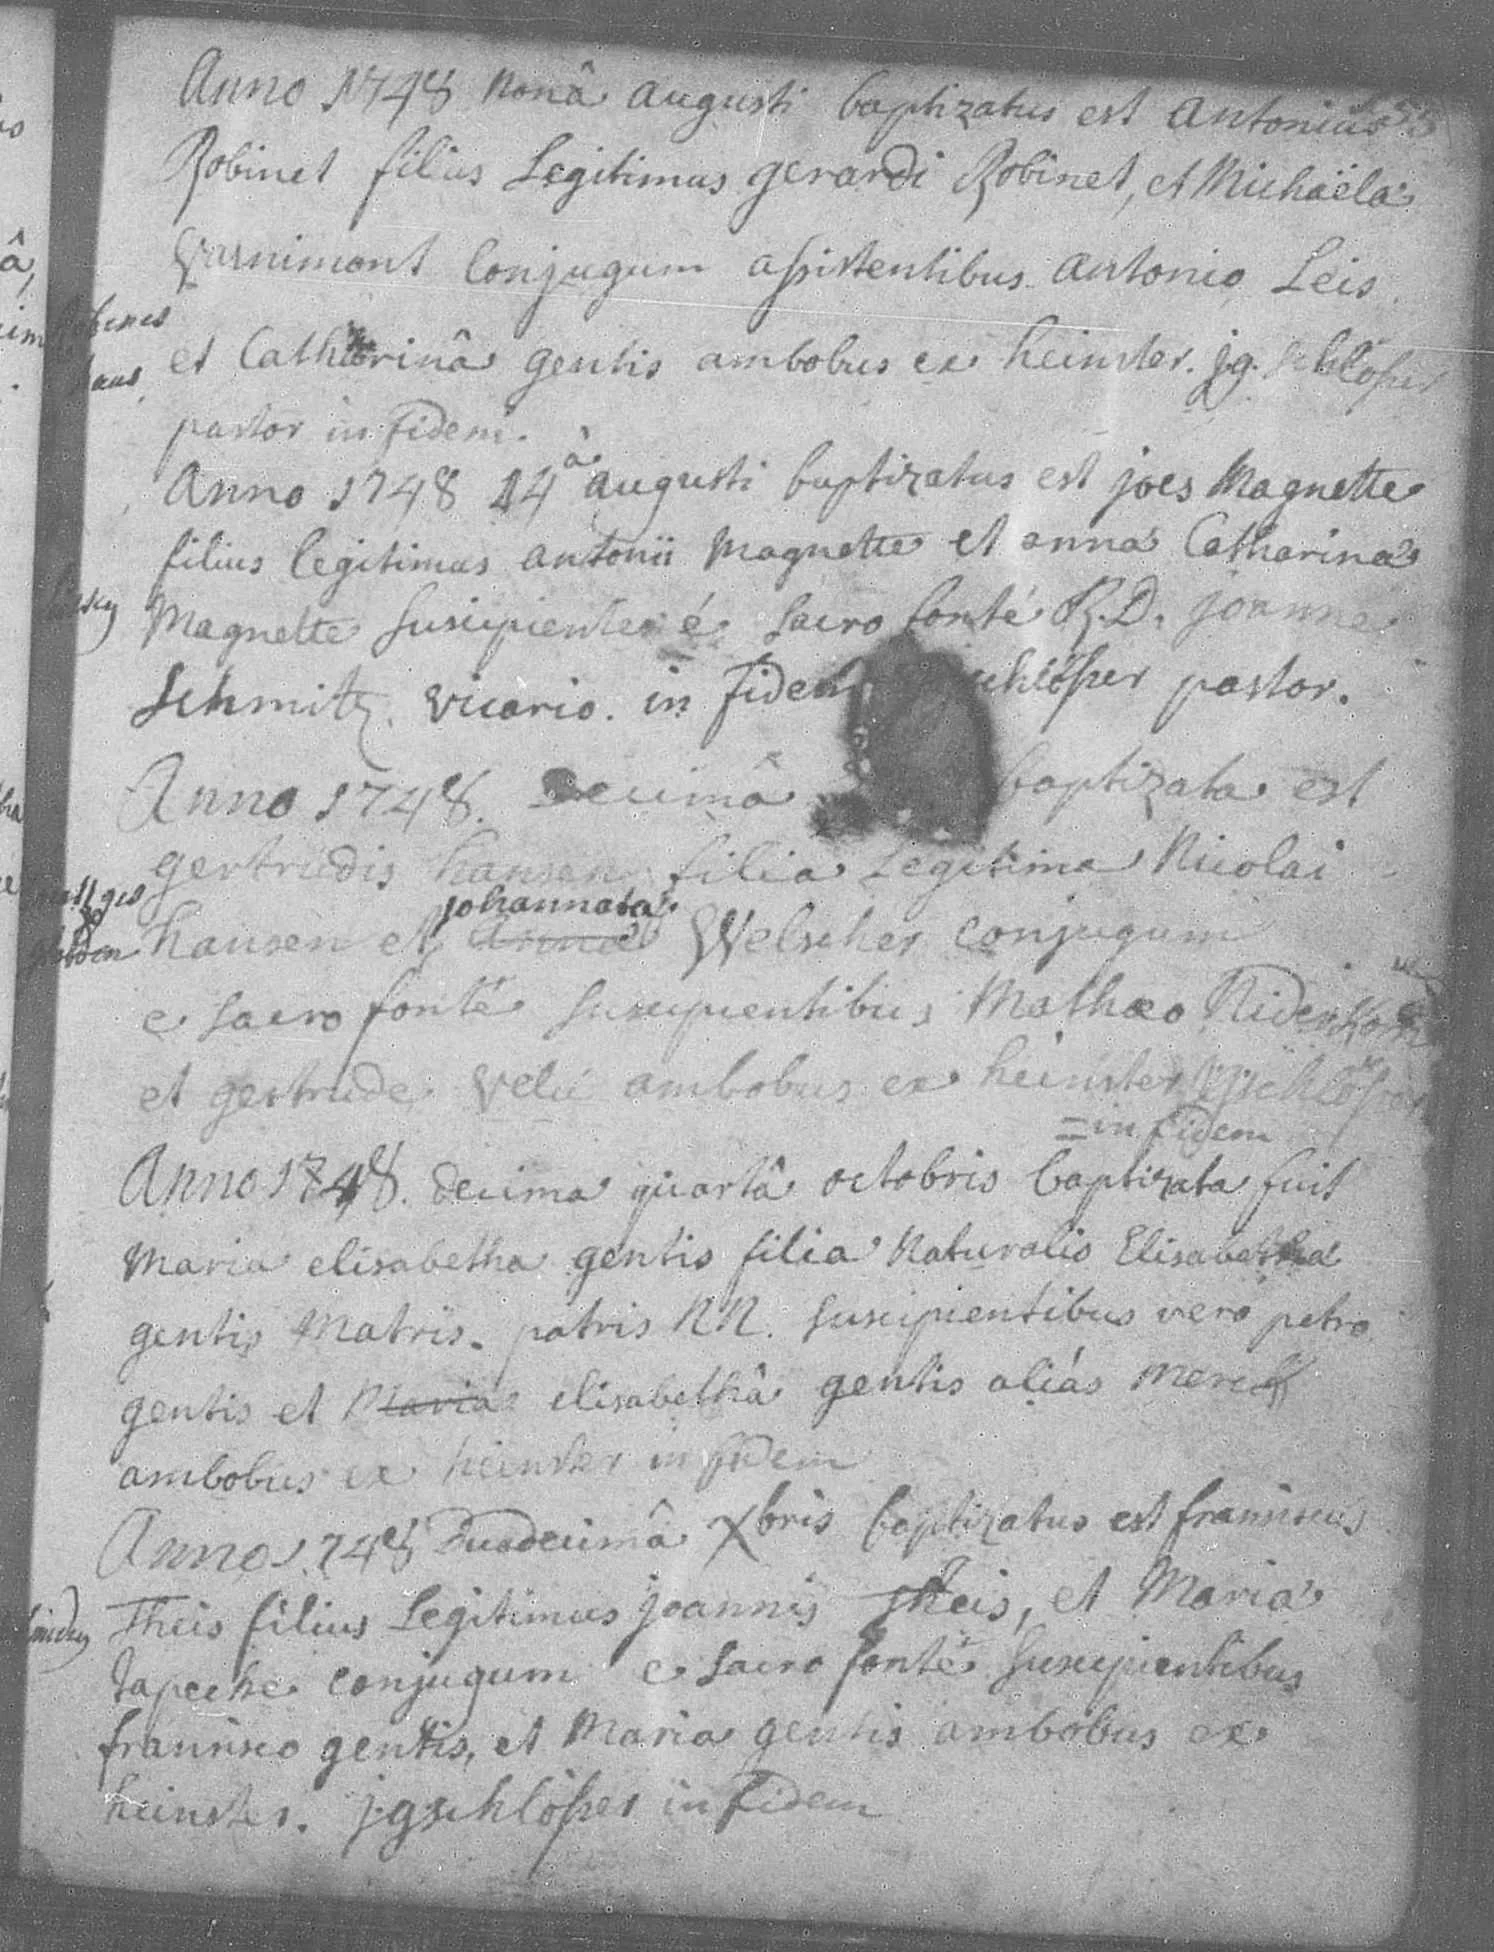 Anno 1748 nonâ augusti baptizatus est antonius
Robinet filius Legitimus gerardi Robinet, et Michaëla
Varnimont Conjugum assistentibus antonio Leis
et Catharinâ gentis ambobus ex heinster. jg. schlösser
pastor in fidem.
Anno 1748 14â augusti baptizatus est joes Magnette
filius legitimus antonii Magnette et anna Catharina
Magnette suscipiente é sacro fonté R.D. joanne
Schmitz. vicario. in fidem schlösser pastor.
Anno 1748. Decimâ baptizata est
gertrudis hansen filia Legitima Nicolai
johannata
hansen et anna Welscher conjugum
e sacro fonté suscipientibus Mathæo
et gertrude Velú ambobus ex heinster jgschlösser
= in fidem
Anno 1748. decima quartâ octobris baptizata fuit
Maria elisabetha gentis filia Naturalis Elisabetha
gentis Matris. patris NN. suscipientibus vero petro
gentis et Maria elisabethâ gentis aliás
ambobus ex heinster in fidem
Anno 1748 Duodecimâ Xbris baptizatus est franciscus
Theis filius Legitimus joannis Theis, et Maria
conjugum e sacro fonté suscipientibus
francisco gentis, et Maria gentis ambobus ex
heinster. jgschlösser in fidem